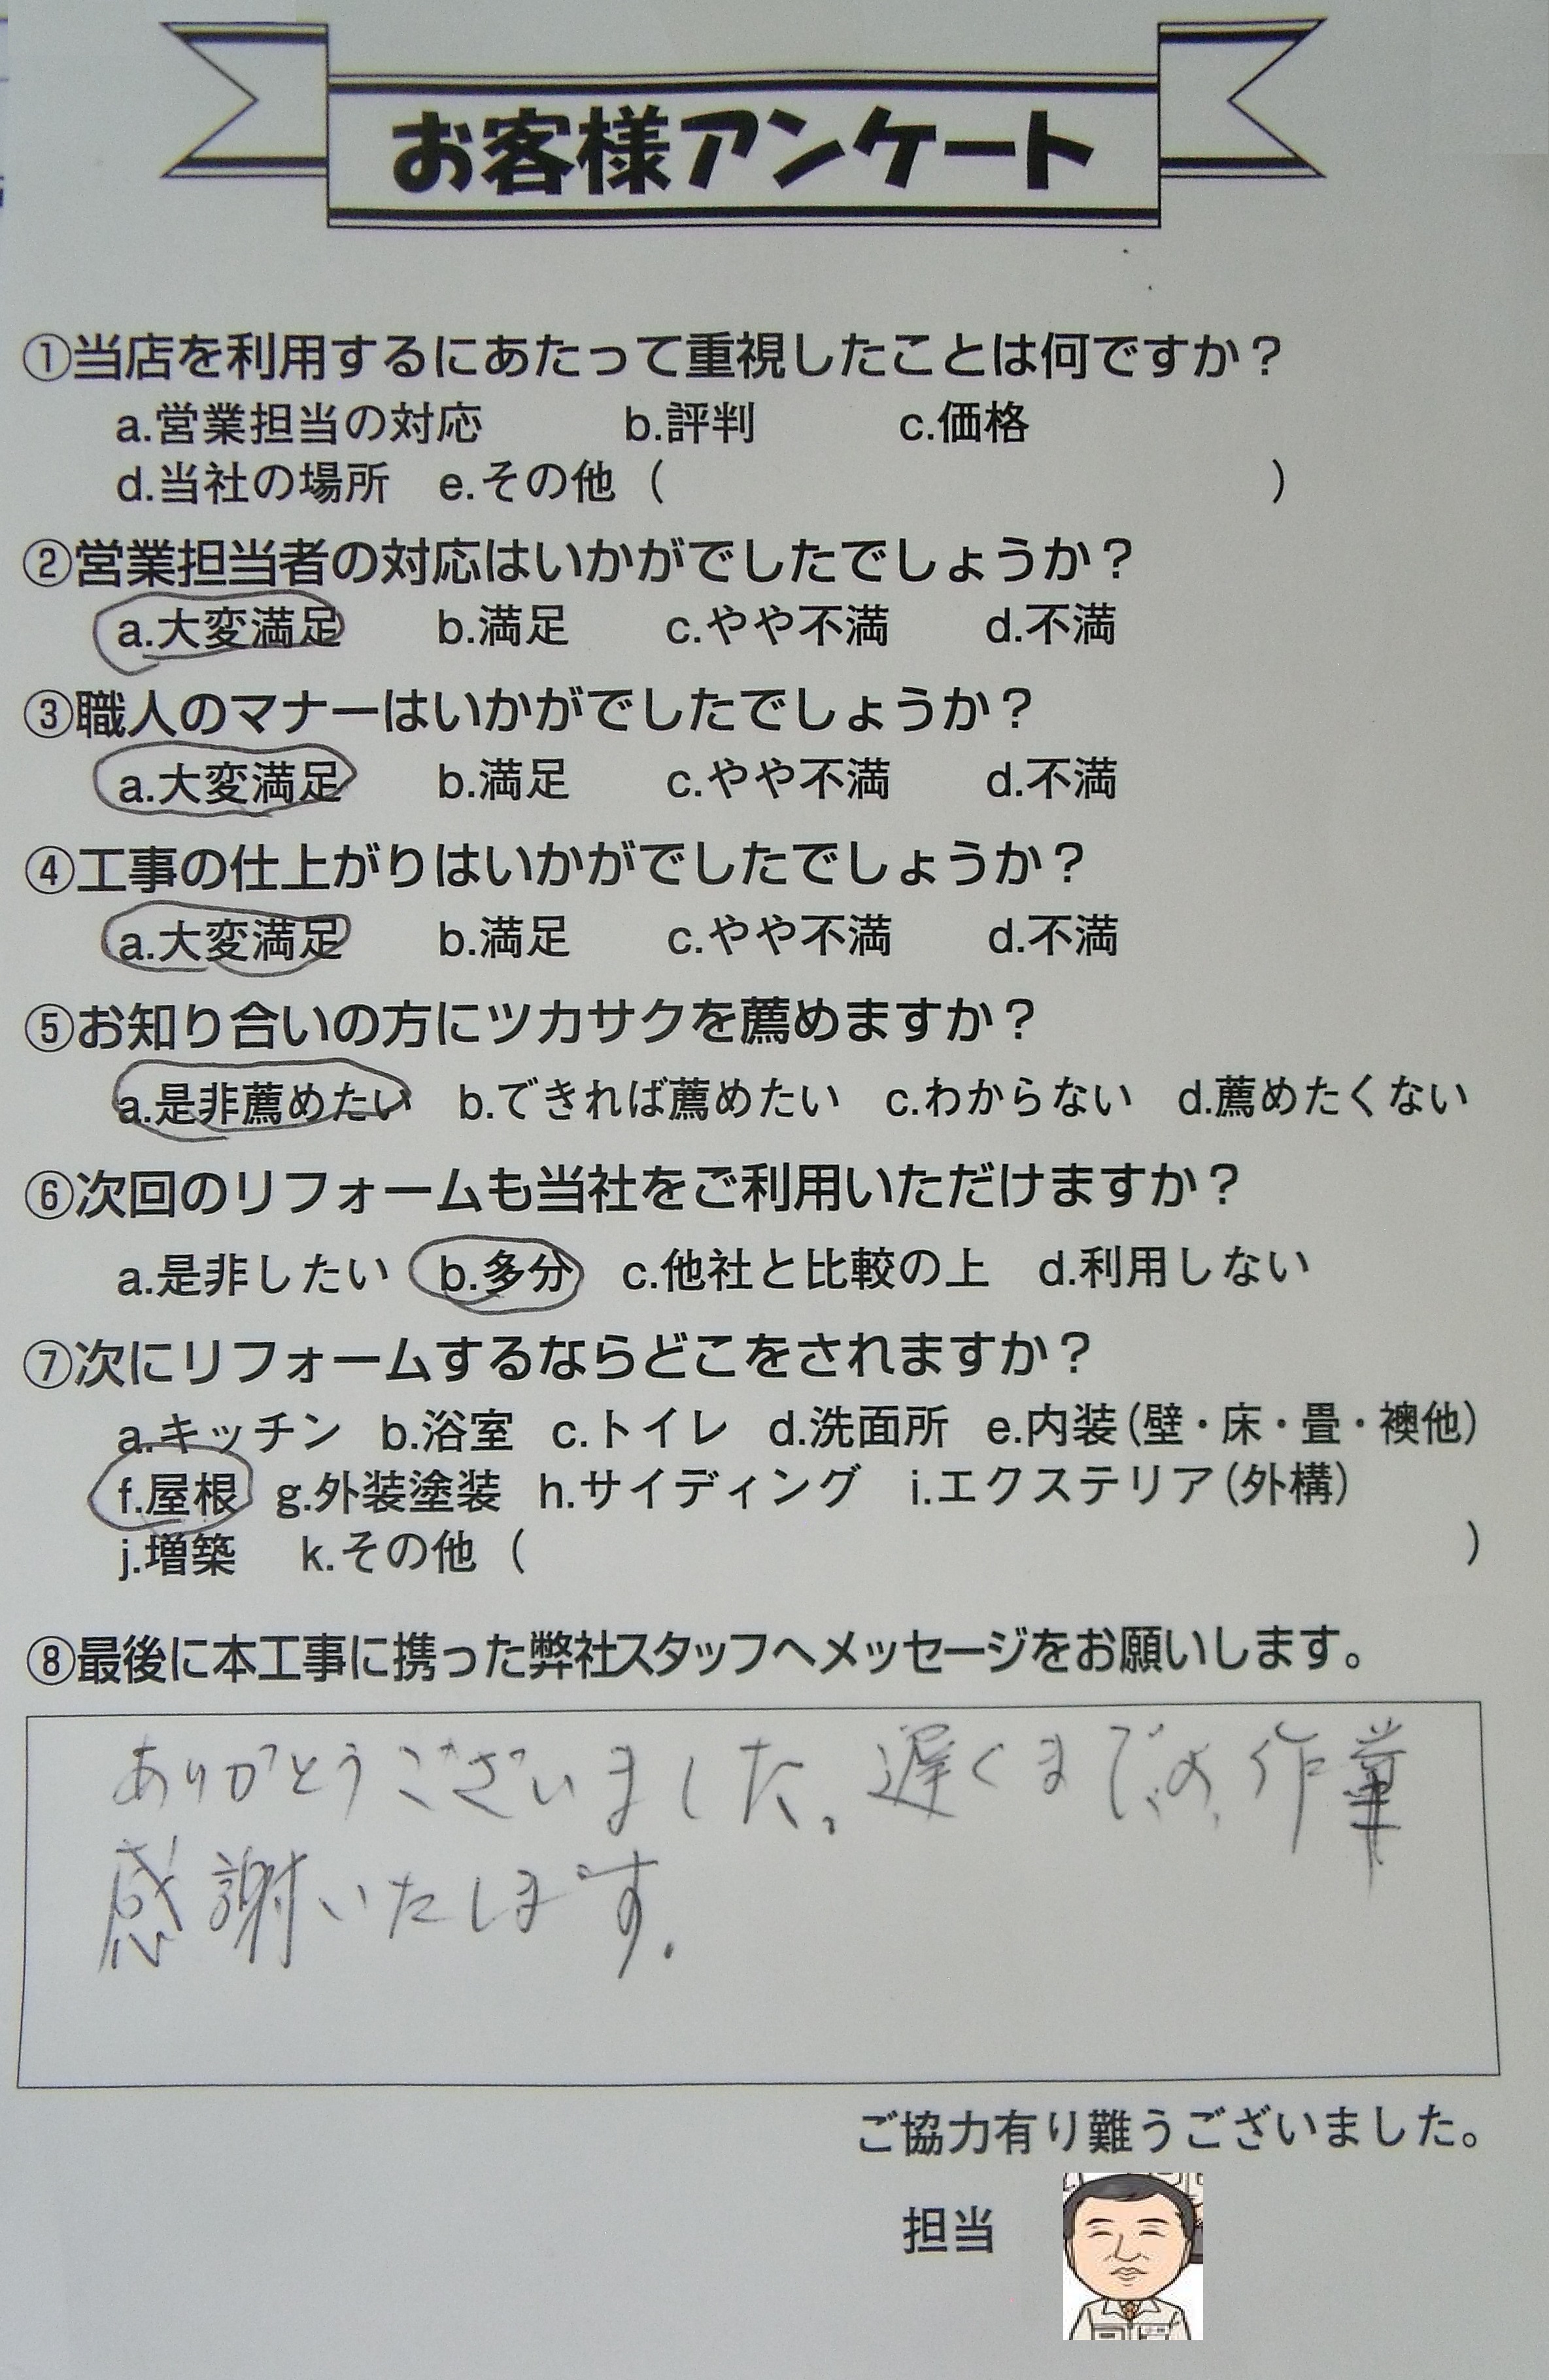 お客様アンケート
①当店を利用するにあたって重視したことは何ですか？
a.営業担当の対応 b.評判 c.価格
d.当社の場所 e.その他（ ）
②営業担当者の対応はいかがでしたでしょうか？
a.大変満足 b.満足 c.やや不満 d.不満
③職人のマナーはいかがでしたでしょうか？
a.大変満足 b.満足 c.やや不満 d.不満
④工事の仕上がりはいかがでしたでしょうか？
a.大変満足 b.満足 c.やや不満 d.不満
⑤お知り合いの方にツカサクを薦めますか？
a.是非薦めたい b.できれば薦めたい c.わからない d.薦めたくない
⑥次回のリフォームも当社をご利用いただけますか？
a.是非したい b.多分 c.他社と比較の上 d.利用しない
⑦次にリフォームするならどこをされますか？
a.キッチン b.浴室 c.トイレ d.洗面所 e.内装（壁・床・畳・襖他）
f.屋根 g.外装塗装 h.サイディング i.エクステリア（外構）
j.増築 k.その他（ ）
⑧最後に本工事に携った弊社スタッフへメッセージをお願いします。
ありがとうございました。遅くまでの作業
感謝いたします。
ご協力有り難うございました。
担当